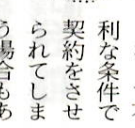 利な条件で
契約をさせ
られてしま
う場合もあ